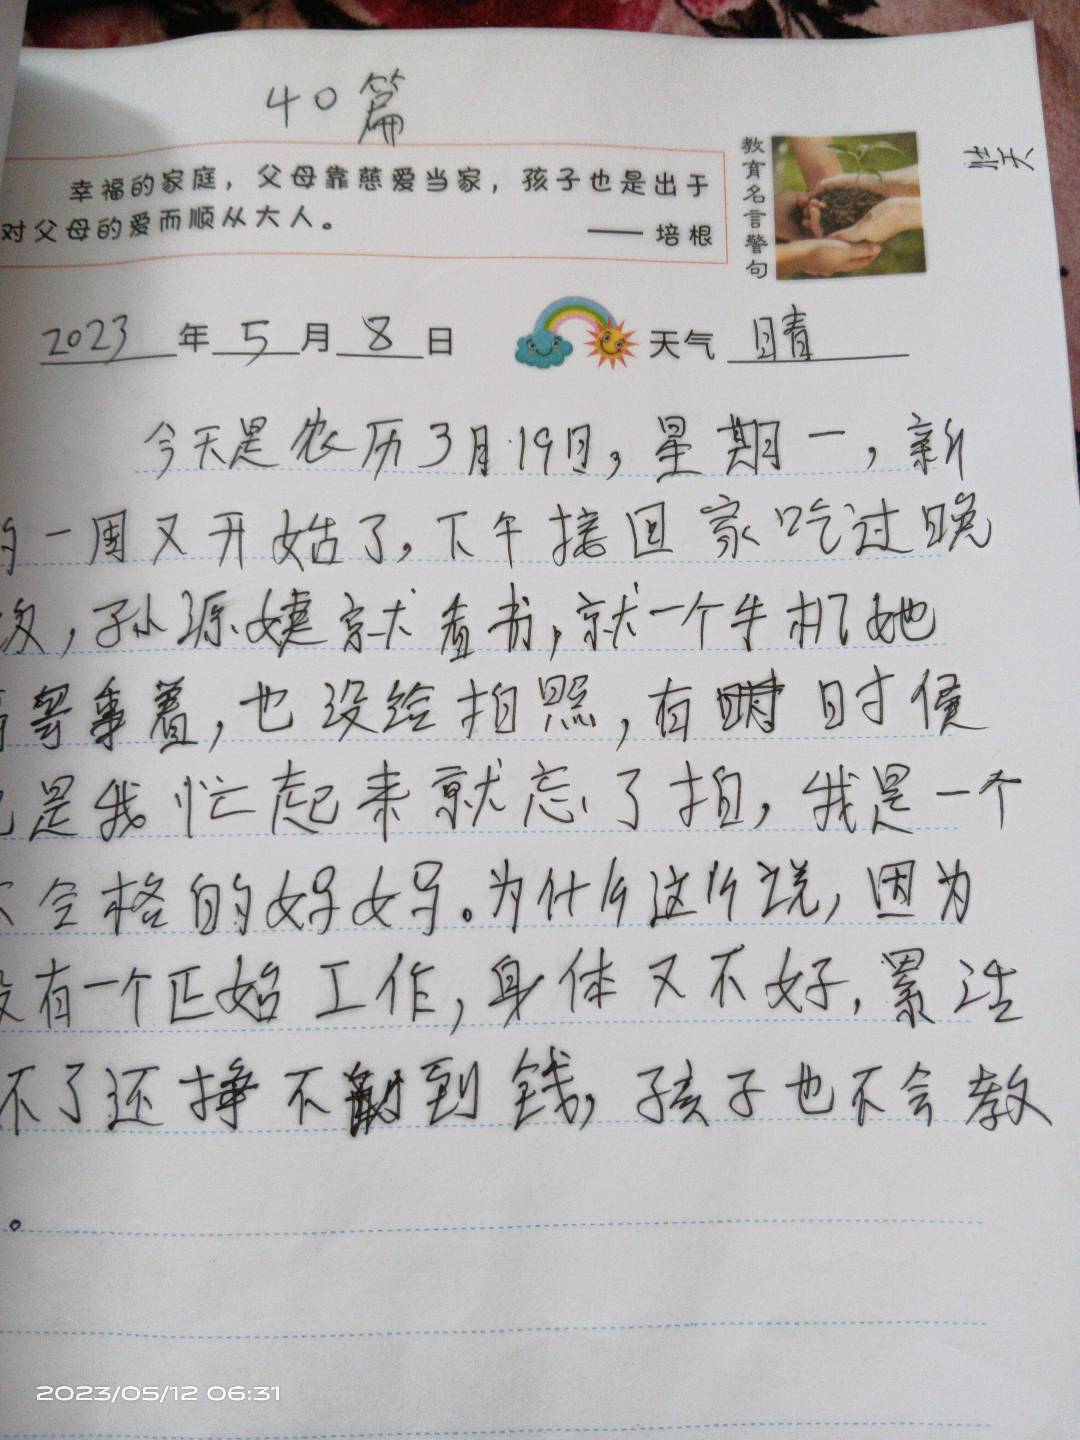 40篇
幸福的家庭，父母靠慈爱当家，孩子也是出于
对父母的爱而顺从大人。
—— 培根
教育名言警句
2023年5月8日 天气 晴
今天是农历3月19日，星期一，新
的一周又开始了，下午接回家吃过晚
饭，孙源婕就看书，就一个手机她
也没给拍照，有 时候
也是我忙起来就忘了拍，我是一个
不合格的好妈。为什么这么说，因为
没有一个正始工作，身体又不好，累活
不了还挣不到钱，孩子也不会教
。
2023/05/12 06:31